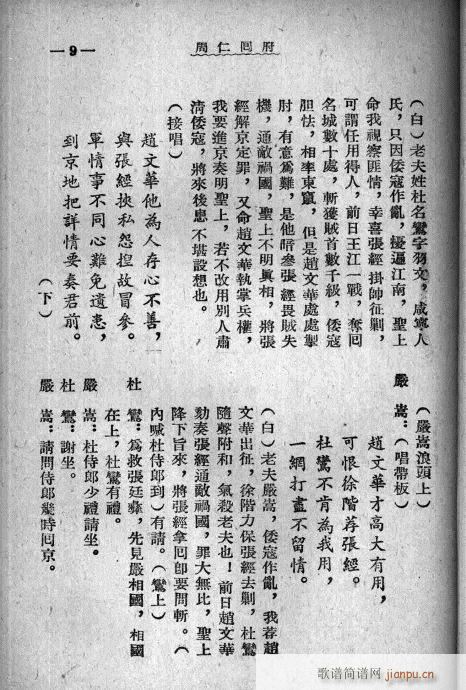 周仁囘府
—9—
(白)老夫姓杜名鸞字羽文,咸寧人
氏,只因倭寇作亂,擾遍江南,聖上
命我視察匪情,幸喜張經掛帥征剿,
可謂任用得人,前日王江一戰,奪囘
名城數十處,斬獲賊首數千級,倭寇
胆怯,相率東竄,但是趙文華處處掣
肘,有意爲難,是他暗參張經畏賊失
機,通敵禍國,聖上不明眞相,將張
經解京定罪,又命趙文華執掌兵權,
我要進京奏明聖上,若不改用別人肅
清倭寇,將來後患不堪設想也。
(接唱)
趙文華他為人存心不善,
與張經挾私怨揑故冒參。
軍情事不同心難免遺患,
到京地把詳情要奏君前。
(下)
(嚴嵩浪頭上)
嚴嵩:(唱帶板)
趙文華才高大有用,
可恨徐階荐張經。
杜鸞不肯為我用,
一網打盡不留情。
(白)老夫嚴嵩,倭寇作亂,我荐趙
文華出征,徐階力保張經去剿,杜鸞
隨聲附和,氣殺老夫也!前日趙文華
劾奏張經通敵禍國,罪大無比,聖上
降下旨來,將張經拿囘卽要問斬。(
內喊杜侍郎到)有請。(鸞上)
杜鸞:爲救張廷彝,先見嚴相國,相國
在上,杜鸞有禮。
嚴嵩:杜侍郎少禮請坐。
杜鸞:謝坐。
嚴嵩:請問侍郎幾時囘京。
歌谱简谱网
jianpu.cn